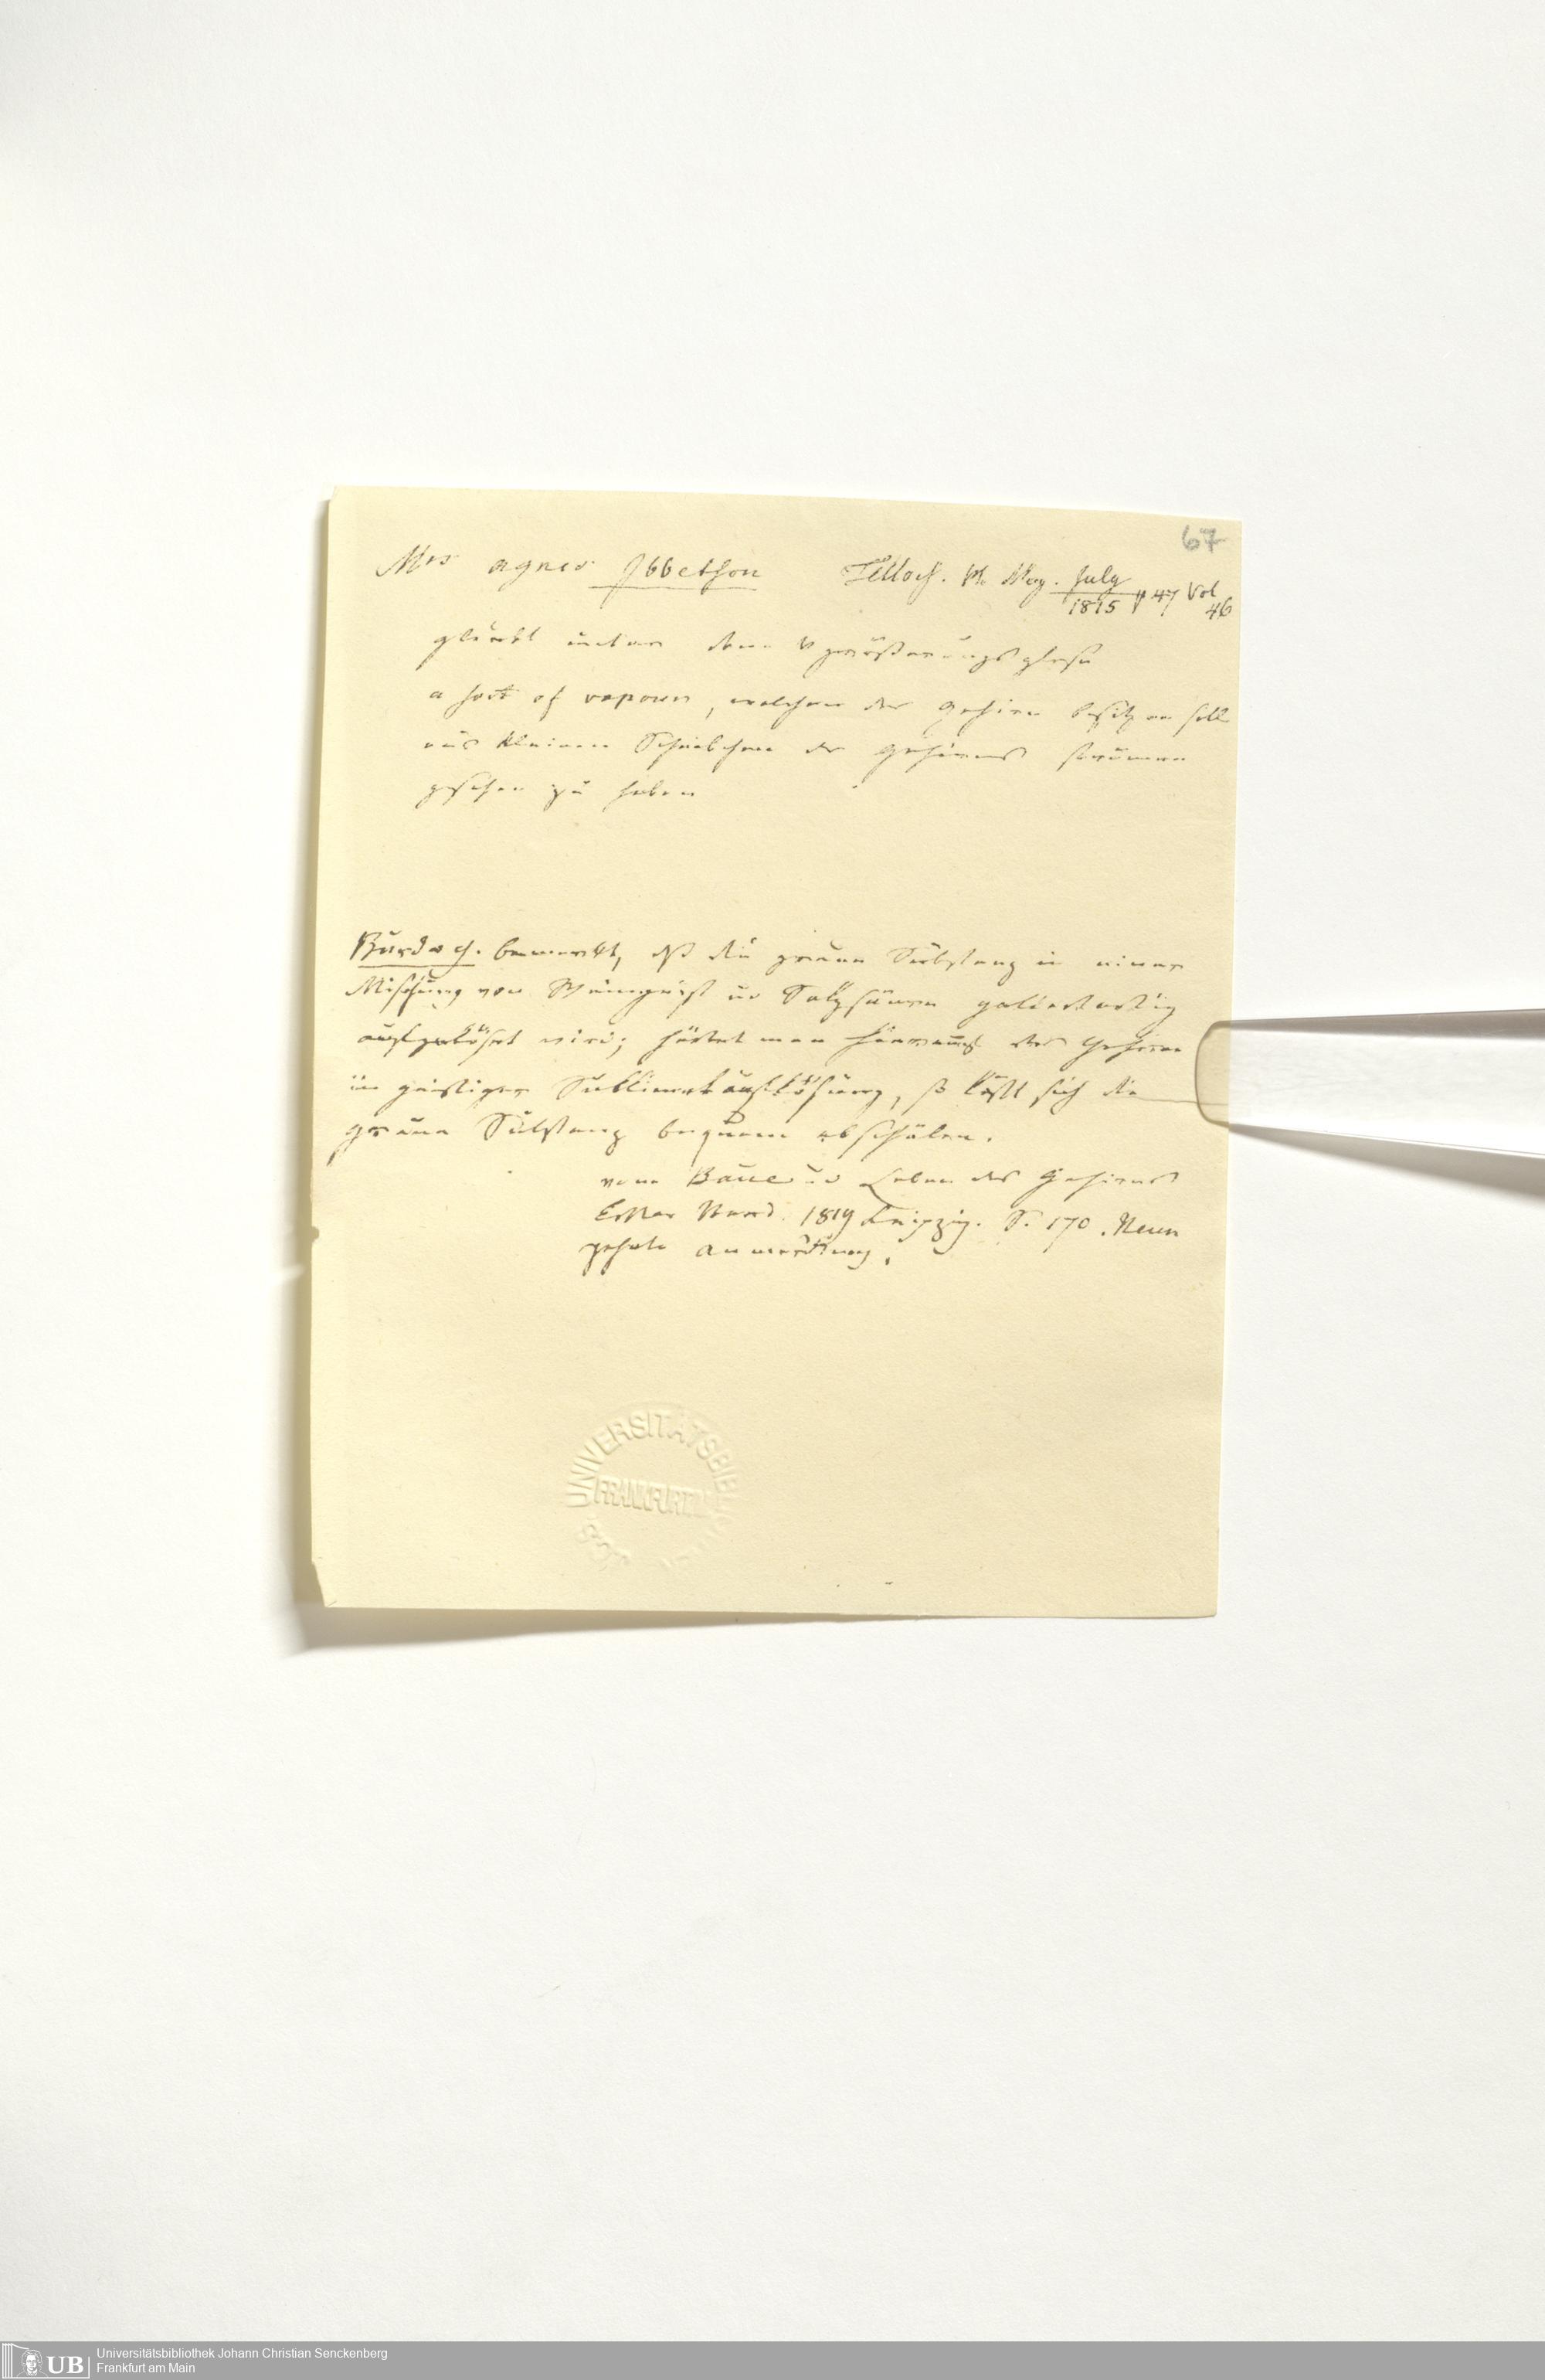 67
Mrs Agnes Ibbetson Tilloch. Ph. Mag. July 1815 p 47 Vol 46
glaubt unter dem Vergrößerungsglase
a sort of vapour, welchen das Gehirn besitzen soll
aus kleinen Scheibchen des Gehirns strömen
gesehen zu haben
Burdach. bemerkt, daß die graue Substanz in einer
Mischung von Weingeist und Salzsäure gallertartig
aufgelöset wird; härtet man hierauf das Gehirn
in geistiger Sublimatauflösung, so läßt sich die
graue Substanz bequem abschälen.
vom Baue und Leben des Gehirns
Erster Band. 1819 Leipzig. S. 170. Neun
zehnte Anmerkung.
UNIVERSITÄTSBIBL
FRANKFURT
UB
Universitätsbibliothek Johann Christian Senckenberg
Frankfurt am Main